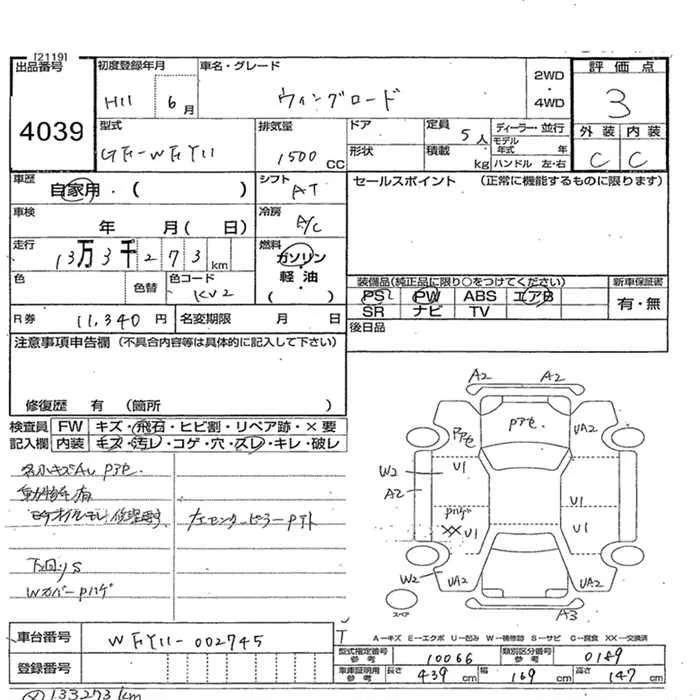 [2119]
出品番号
4039
初度登録年月
H11 6月
車名・グレード
ウィングロード
2WD
・
4WD
評価点
3
外装 内装
C C
型式
GF-WFY11
排気量
1500cc
ドア
形状
定員 5人
積載 kg
ディーラー・並行
モデル年式 年
ハンドル 左・右
車歴
自家用・( )
シフト
AT
車検
年 月( 日)
冷房
A/C
走行
13万3千273km
燃料
ガソリン
・
軽油
( )
色
色替
色コード
KV2
R券 11,340円
名変期限 月 日
セールスポイント (正常に機能するものに限ります)
装備品(純正品に限り○をつけてください)
PS PW ABS エアB
SR ナビ TV
新車保証書
有・無
後日品
注意事項申告欄 (不具合内容等は具体的に記入して下さい)
修復歴 有 (箇所 )
検査員 FW キズ・飛石・ヒビ割・リペア跡・×要
記入欄 内装 キズ・汚レ・コゲ・穴・スレ・キレ・破レ
下回りS
WカバーPハゲ
A2 A2
Pアセ
UA2
U1
W2
A2
U1
Pハゲ
XX U1
U1
W2
UA2
UA2
スペア
A3
A—キズ E—エクボ U—凹み W—補修跡 S—サビ C—腐食 XX—交換済
車台番号 WFY11-002745
登録番号
型式指定番号 参考 10066
類別区分番号 参考 0189
車庫証明用 参考 長さ 439cm 幅 169cm 高さ 147cm
133273km